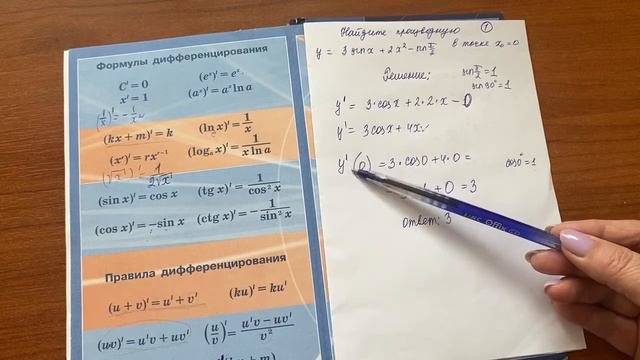 Формулы дифференцирования
C' = 0
(eˣ)' = eˣ
x' = 1
(aˣ)' = aˣ ln a
(1/x)' = -1/x²
(kx + m)' = k
(ln x)' = 1/x
(xʳ)' = rxʳ⁻¹
(logₐ x)' = 1/(x ln a)
(√x)' = 1/(2√x)
(sin x)' = cos x
(tg x)' = 1/cos² x
(cos x)' = -sin x
(ctg x)' = -1/sin² x
Правила дифференцирования
(u + v)' = u' + v'
(ku)' = ku'
(uv)' = u'v + uv'
(u/v)' = (u'v - uv')/v²
Найдите производную
1
y = 3 sin x + 2x² - sin π/2 в точке x₀ = 0
Решение:
sin π/2 = 1
sin 90° = 1
y' = 3·cos x + 2·2·x - 0
y' = 3cos x + 4x
y'(0) = 3·cos 0 + 4·0 =
cos 0° = 1
+ 0 = 3
ответ: 3